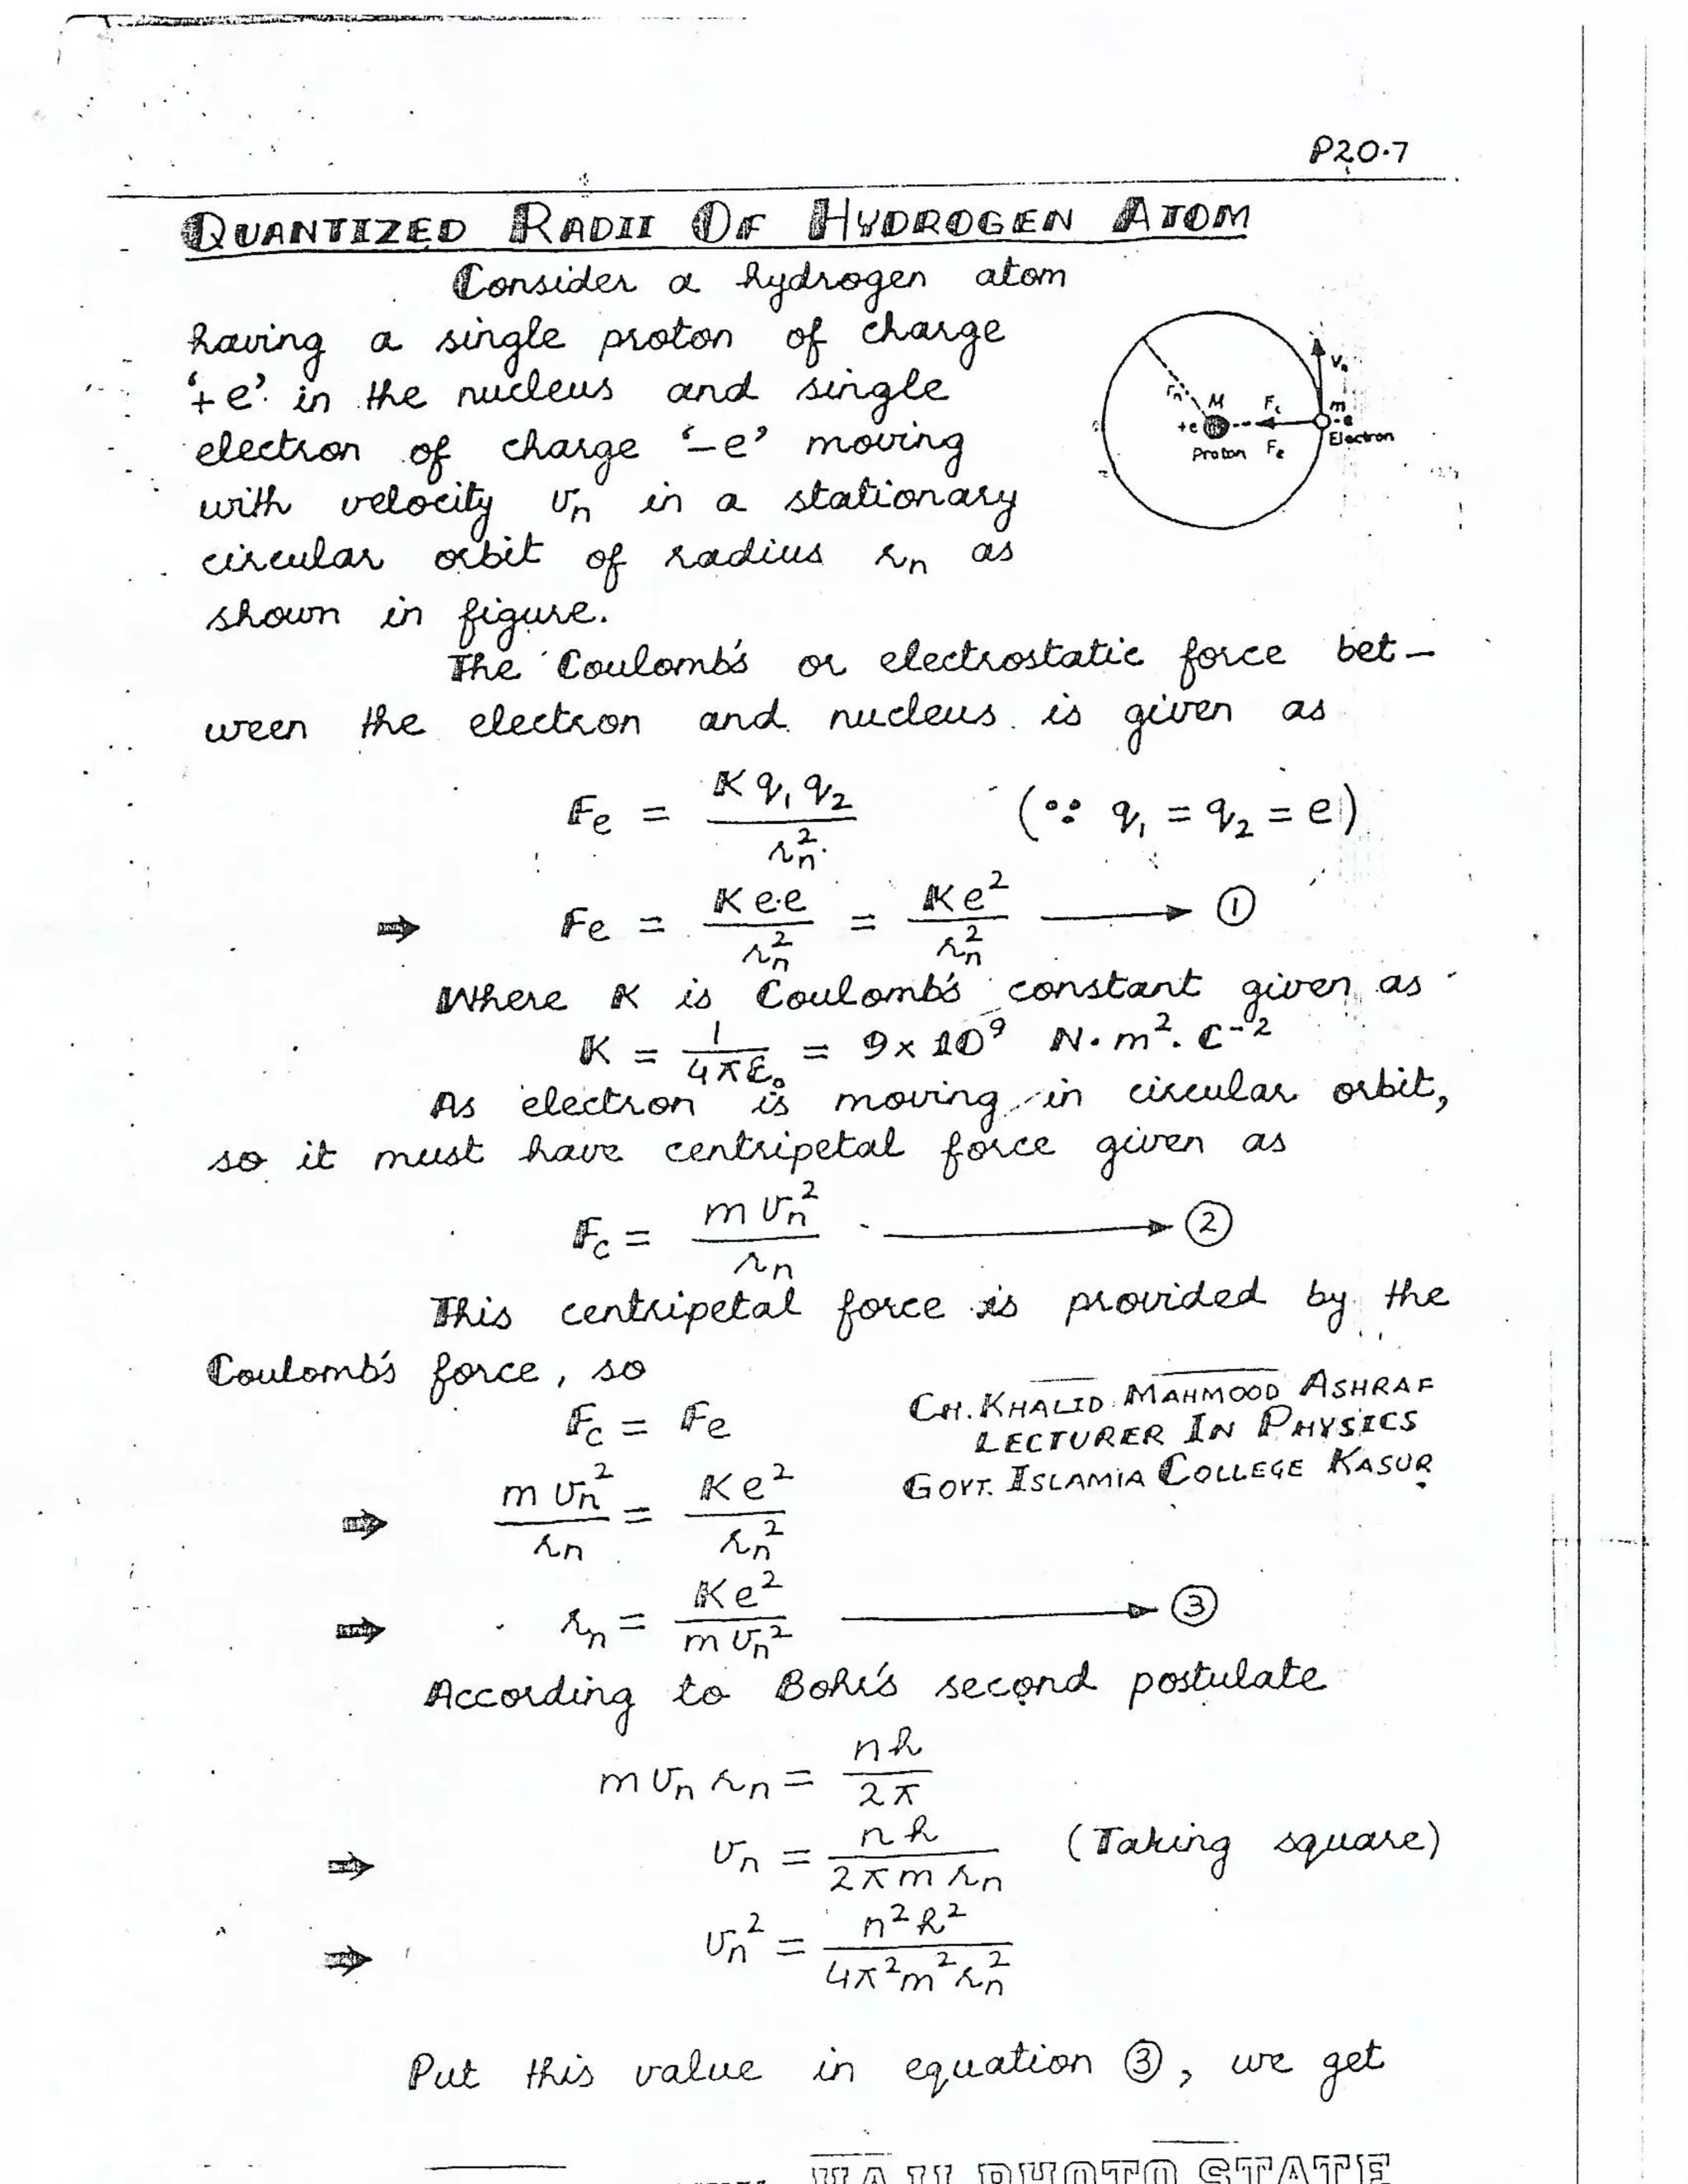 P20.7
QUANTIZED RADII OF HYDROGEN ATOM
Consider a hydrogen atom
having a single proton of charge
'+e' in the nucleus and single
electron of charge '-e' moving
with velocity vn in a stationary
circular orbit of radius rn as
shown in figure.
vn
rn
M
Fc
m
+e
-e
Electron
Proton
Fe
The Coulomb's or electrostatic force bet-
ween the electron and nucleus is given as
Fe = K q₁ q₂ / rn² (∵ q₁ = q₂ = e)
⇒ Fe = K e.e / rn² = Ke² / rn² → ①
Where K is Coulomb's constant given as
K = 1 / 4πε₀ = 9 x 10⁹ N. m². C⁻²
As electron is moving in circular orbit,
so it must have centripetal force given as
Fc = m vn² / rn → ②
This centripetal force is provided by the
Coulomb's force, so
Fc = Fe
CH. KHALID MAHMOOD ASHRAF
LECTURER IN PHYSICS
GOVT. ISLAMIA COLLEGE KASUR
⇒ m vn² / rn = Ke² / rn²
⇒ rn = Ke² / m vn² → ③
According to Bohr's second postulate
m vn rn = nh / 2π
⇒ vn = nh / 2π m rn (Taking square)
⇒ vn² = n²h² / 4π²m²rn²
Put this value in equation ③, we get
PHOTO STATE